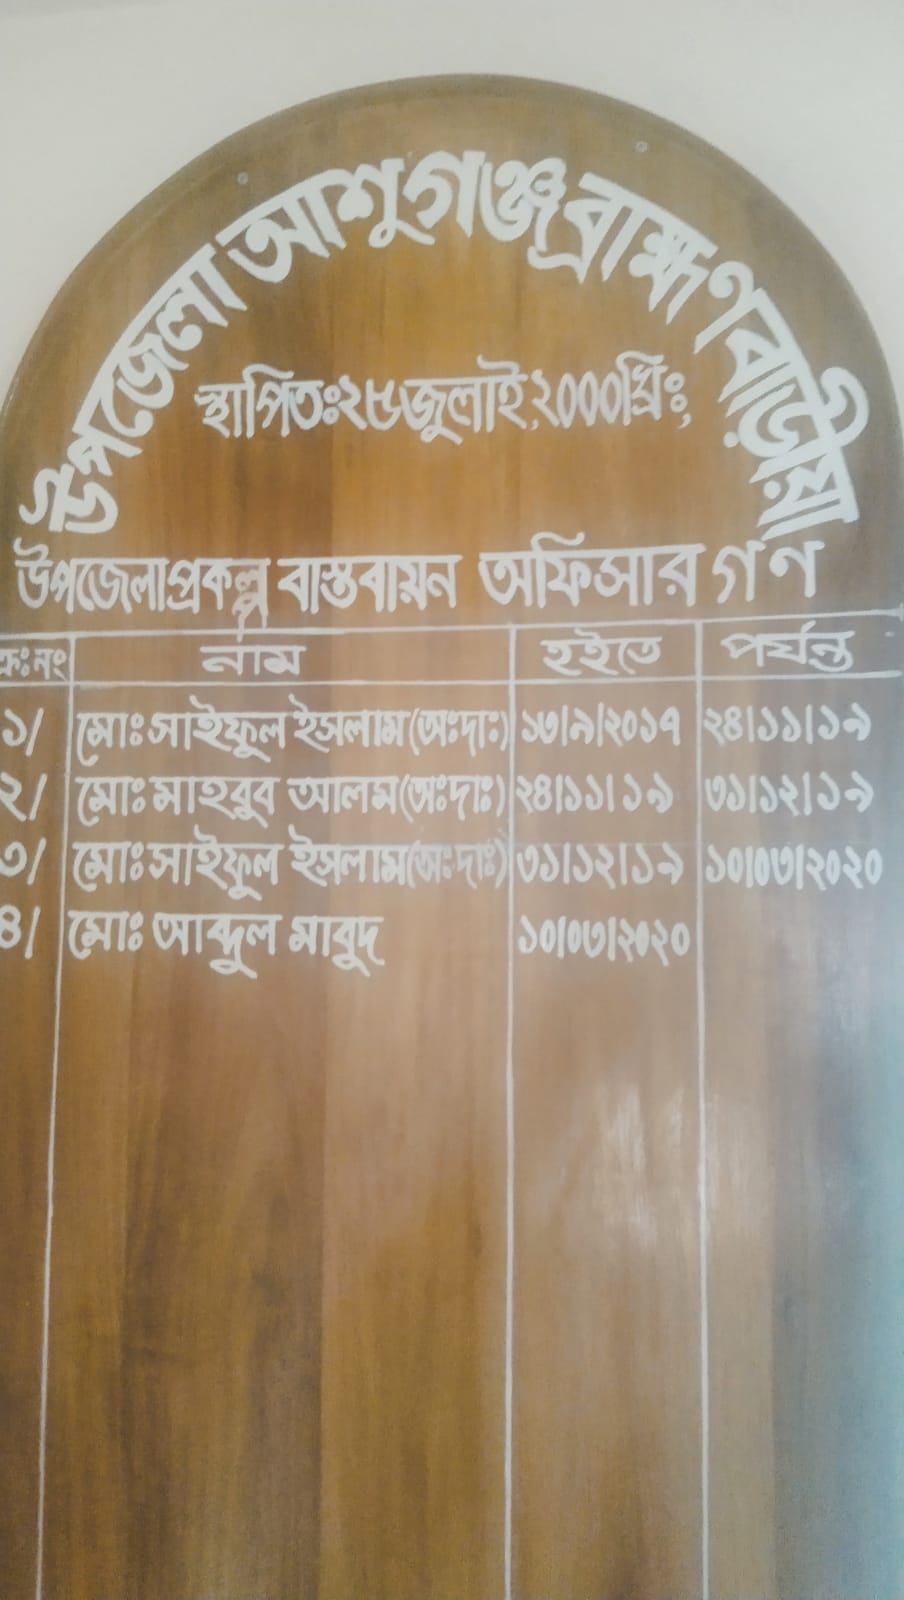 উপজেলা আশুগঞ্জ ব্রাহ্মণবাড়ীয়া
স্থাপিতঃ ২৫ জুলাই, ২০০০ খ্রিঃ,
উপজেলা প্রকল্প বাস্তবায়ন অফিসার গণ
ক্রঃনং নাম হইতে পর্যন্ত
১/ মোঃ সাইফুল ইসলাম (অঃদাঃ) ১৩/৯/২০১৭ ২৪/১১/১৯
২/ মোঃ মাহবুব আলম (অঃদাঃ) ২৪/১১/১৯ ৩১/১২/১৯
৩/ মোঃ সাইফুল ইসলাম (অঃদাঃ) ৩১/১২/১৯ ১০/০৩/২০২০
৪/ মোঃ আব্দুল মাবুদ ১০/০৩/২০২০